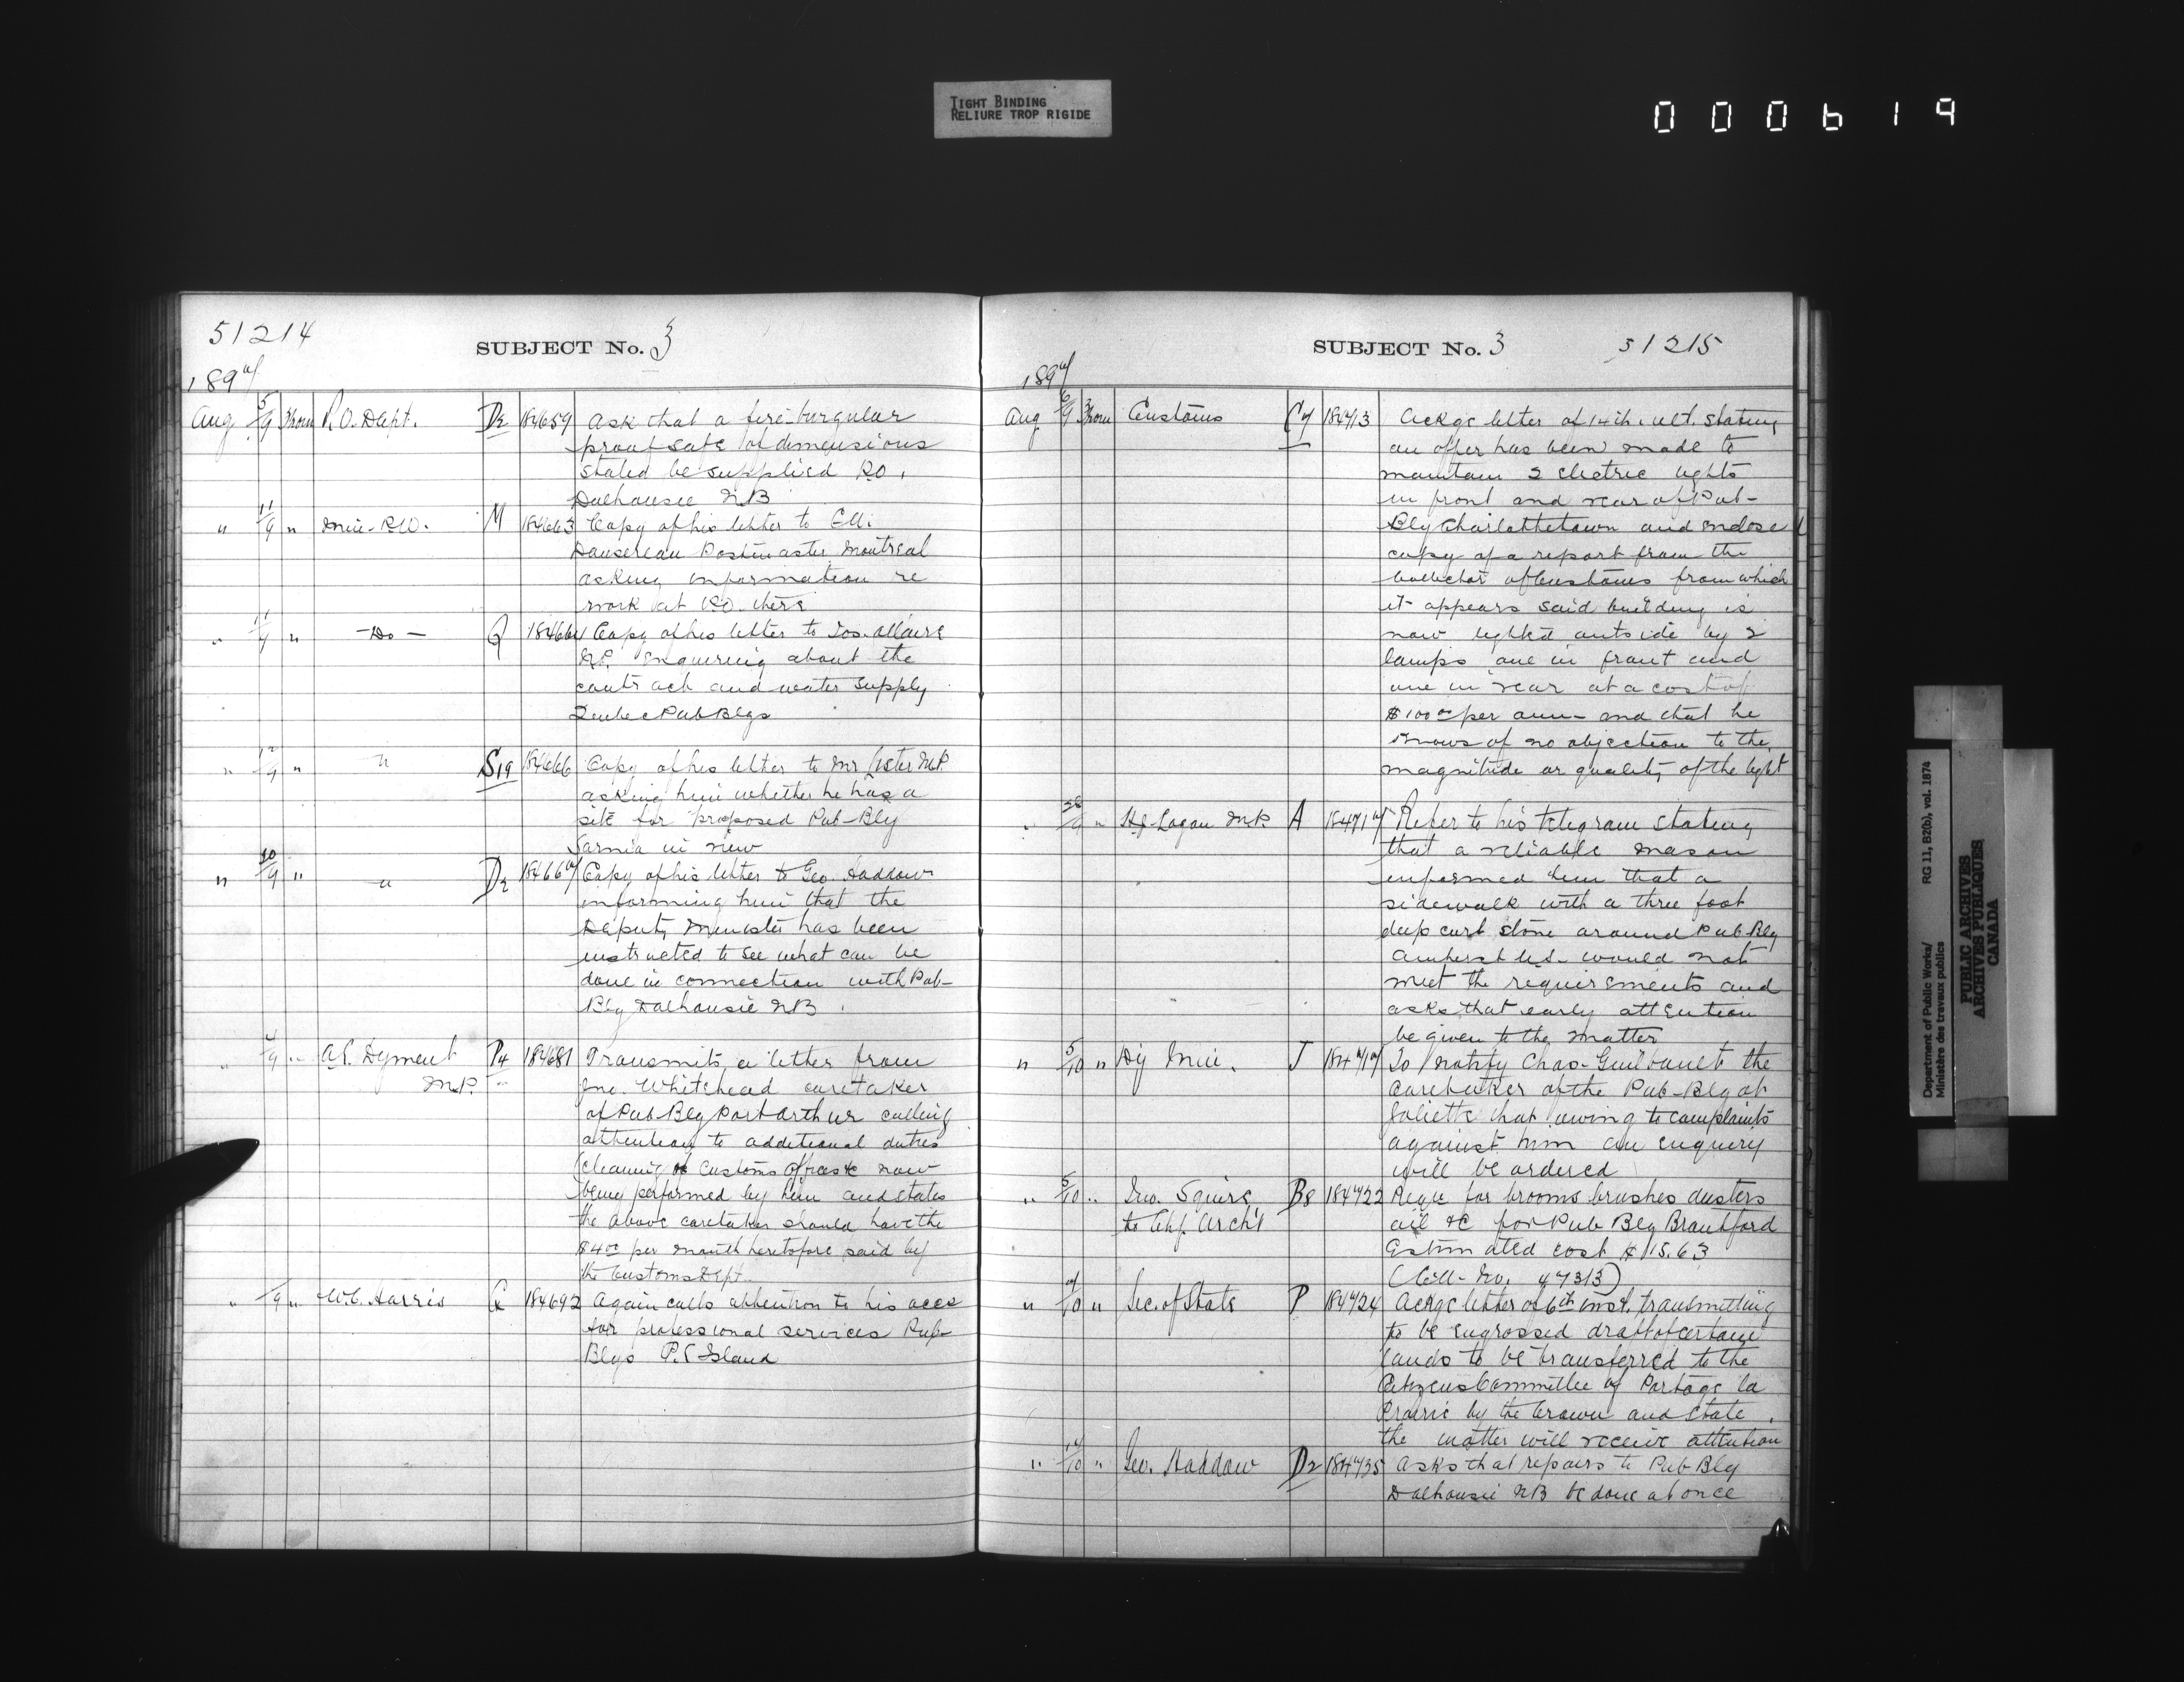 TIGHT BINDING
RELIURE TROP RIGIDE
000619
51214
SUBJECT No. 3
1897
Aug 5/9 From P.O. Dept. D2 184659 Ask that a fire-burgular
proof safe of dimensions
stated be supplied P.O.
Dalhousie N.B
" 11/9 " Min- P.W. M 184663 Copy of his letter to
Dansereau Postmaster Montreal
asking information re
work at P.O. there
" 11/9 " - Do - Q 184664 Copy of his letter to Jos. Allaire
N.P. enquiring about the
contract and water supply
Quebec Pub Blgs
" 12/9 " " S19 184666 Copy of his letter to Mr Lister M.P.
asking him whether he has a
site for proposed Pub-Blg
Sarnia in view
" 10/9 " " D2 184667 Copy of his letter to Geo. Haddow
informing him that the
Deputy Minister has been
instructed to see what can be
done in connection with Pub-
Blg Dalhousie N.B.
" 4/9 " A.E. Dyment P4 184681 Transmits a letter from
M.P. Jno. Whitehead caretaker
of Pub-Blg Port Arthur calling
attention to additional duties
(cleaning of Customs Offices &c now
being performed by him and states
the above caretaker should have the
$4.00 per month heretofore said by
the Customs Dept.
" /9 " W.C. Harris 184692 Again calls attention to his accs
for professional services Pub-
Blgs P.E Island
SUBJECT No. 3 51215
1897
Aug 6/9 From Customs C7 184713 Ackge letter of 14th. ult. stating
an offer has been made to
maintain 2 electric lights
in front and rear of Pub-
Blg Charlottetown and enclose
copy of a report from the
Collector of Customs from which
it appears said building is
now lighted outside by 2
lamps one in front and
one in rear at a cost of
$100.00 per ann- and that he
knows of no objection to the
magnitude or quality of the light
" 28/9 " H.J. Logan M.P. A 184717 Refer to his telegram stating
that a reliable mason
informed him that a
sidewalk with a three foot
deep curb stone around Pub Blg
Amherst N.S. would not
meet the requirements and
asks that early attention
be given to the matter
" 5/10 " Dy Min. J 184719 To notify Chas. Guilbault the
caretaker of the Pub-Blg at
Joliette that owing to complaints
against him an enquiry
will be ordered
" 5/10 " Jno. Squire B8 184722 Requ for brooms brushes dusters
to Chf. Archt oil &c for Pub Blg Brantford
Estimated cost $15.63
(Coll- No. 47313)
" 7/10 " Sec. of State P 184724 Ackge letter of 6th inst. transmitting
to be engrossed draft of certain
lands to be transferred to the
Citizens Committee of Portage la
Prairie by the Crown and state
the matter will receive attention
" 14/10 " Geo. Haddow D2 184735 Asks that repairs to Pub Blg
Dalhousie N.B be done at once
Department of Public Works/
Ministère des travaux publics
RG 11, B2(b), vol. 1874
PUBLIC ARCHIVES
ARCHIVES PUBLIQUES
CANADA